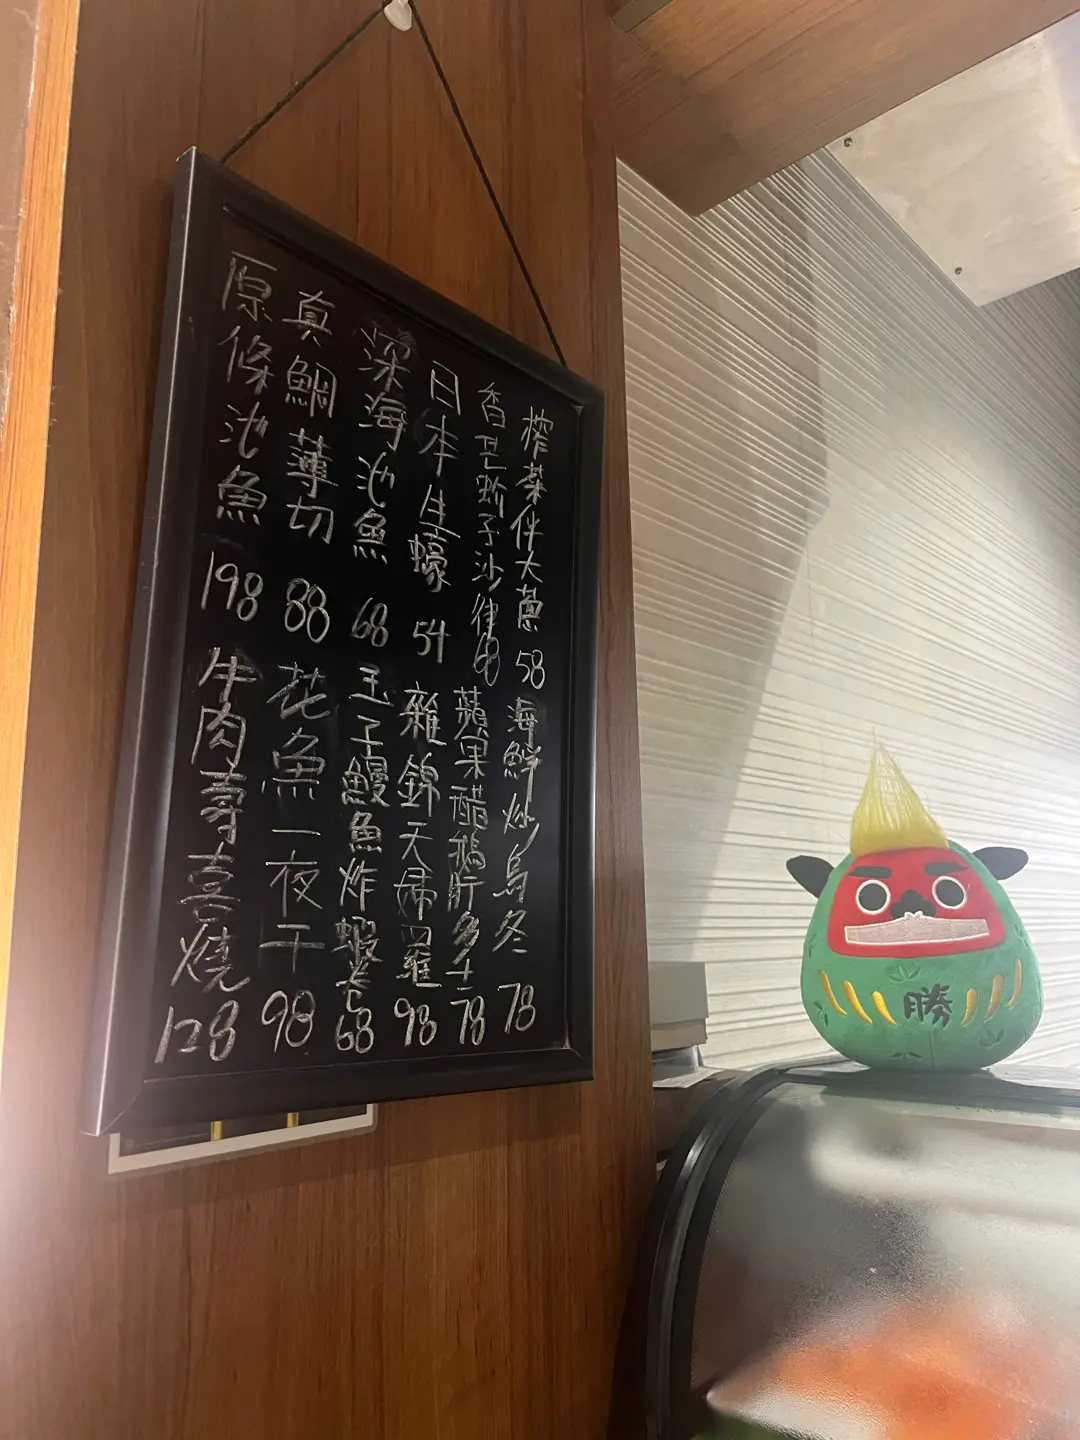 榨菜伴大蔥 58
香芒蚧子沙律 68
日本生蠔 54
深海池魚 68
真鯛薄切 88
原條池魚 198
海鮮炒烏冬 78
蘋果醋鵝肝多士 78
雜錦天婦羅 98
玉子鰻魚炸蝦卷 68
花魚一夜干 98
牛肉壽喜燒 128
勝